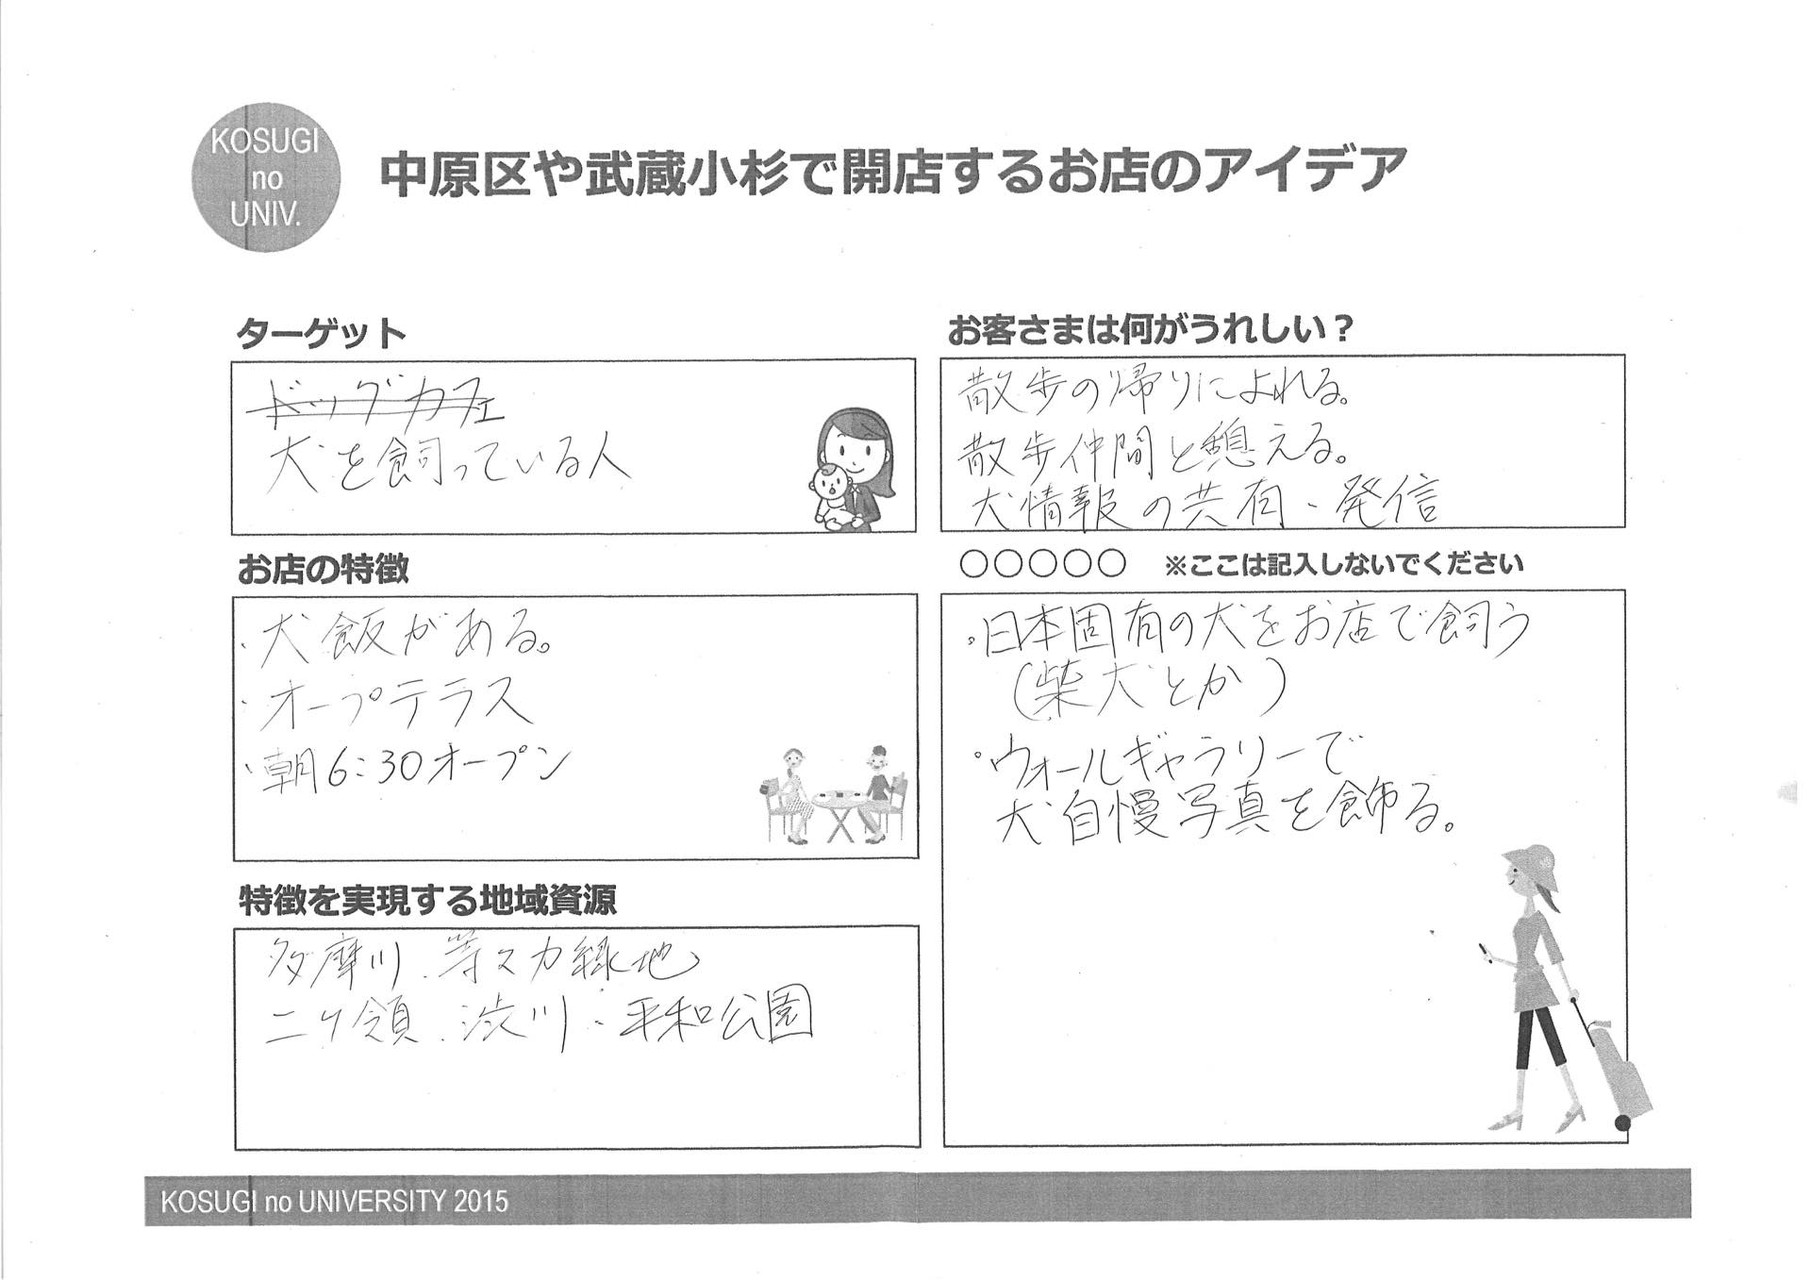 KOSUGI
no
UNIV.
中原区や武蔵小杉で開店するお店のアイデア
ターゲット
ドッグカフェ
犬を飼っている人
お客さまは何がうれしい？
散歩の帰りによれる。
散歩仲間と憩える。
犬情報の共有・発信
お店の特徴
・犬飯がある。
・オープテラス
・朝6:30オープン
○○○○○ ※ここは記入しないでください
・日本固有の犬をお店で飼う
(柴犬とか)
・ウォールギャラリーで
犬自慢写真を飾る。
特徴を実現する地域資源
多摩川、等々力緑地
二ヶ領、渋川、平和公園
KOSUGI no UNIVERSITY 2015